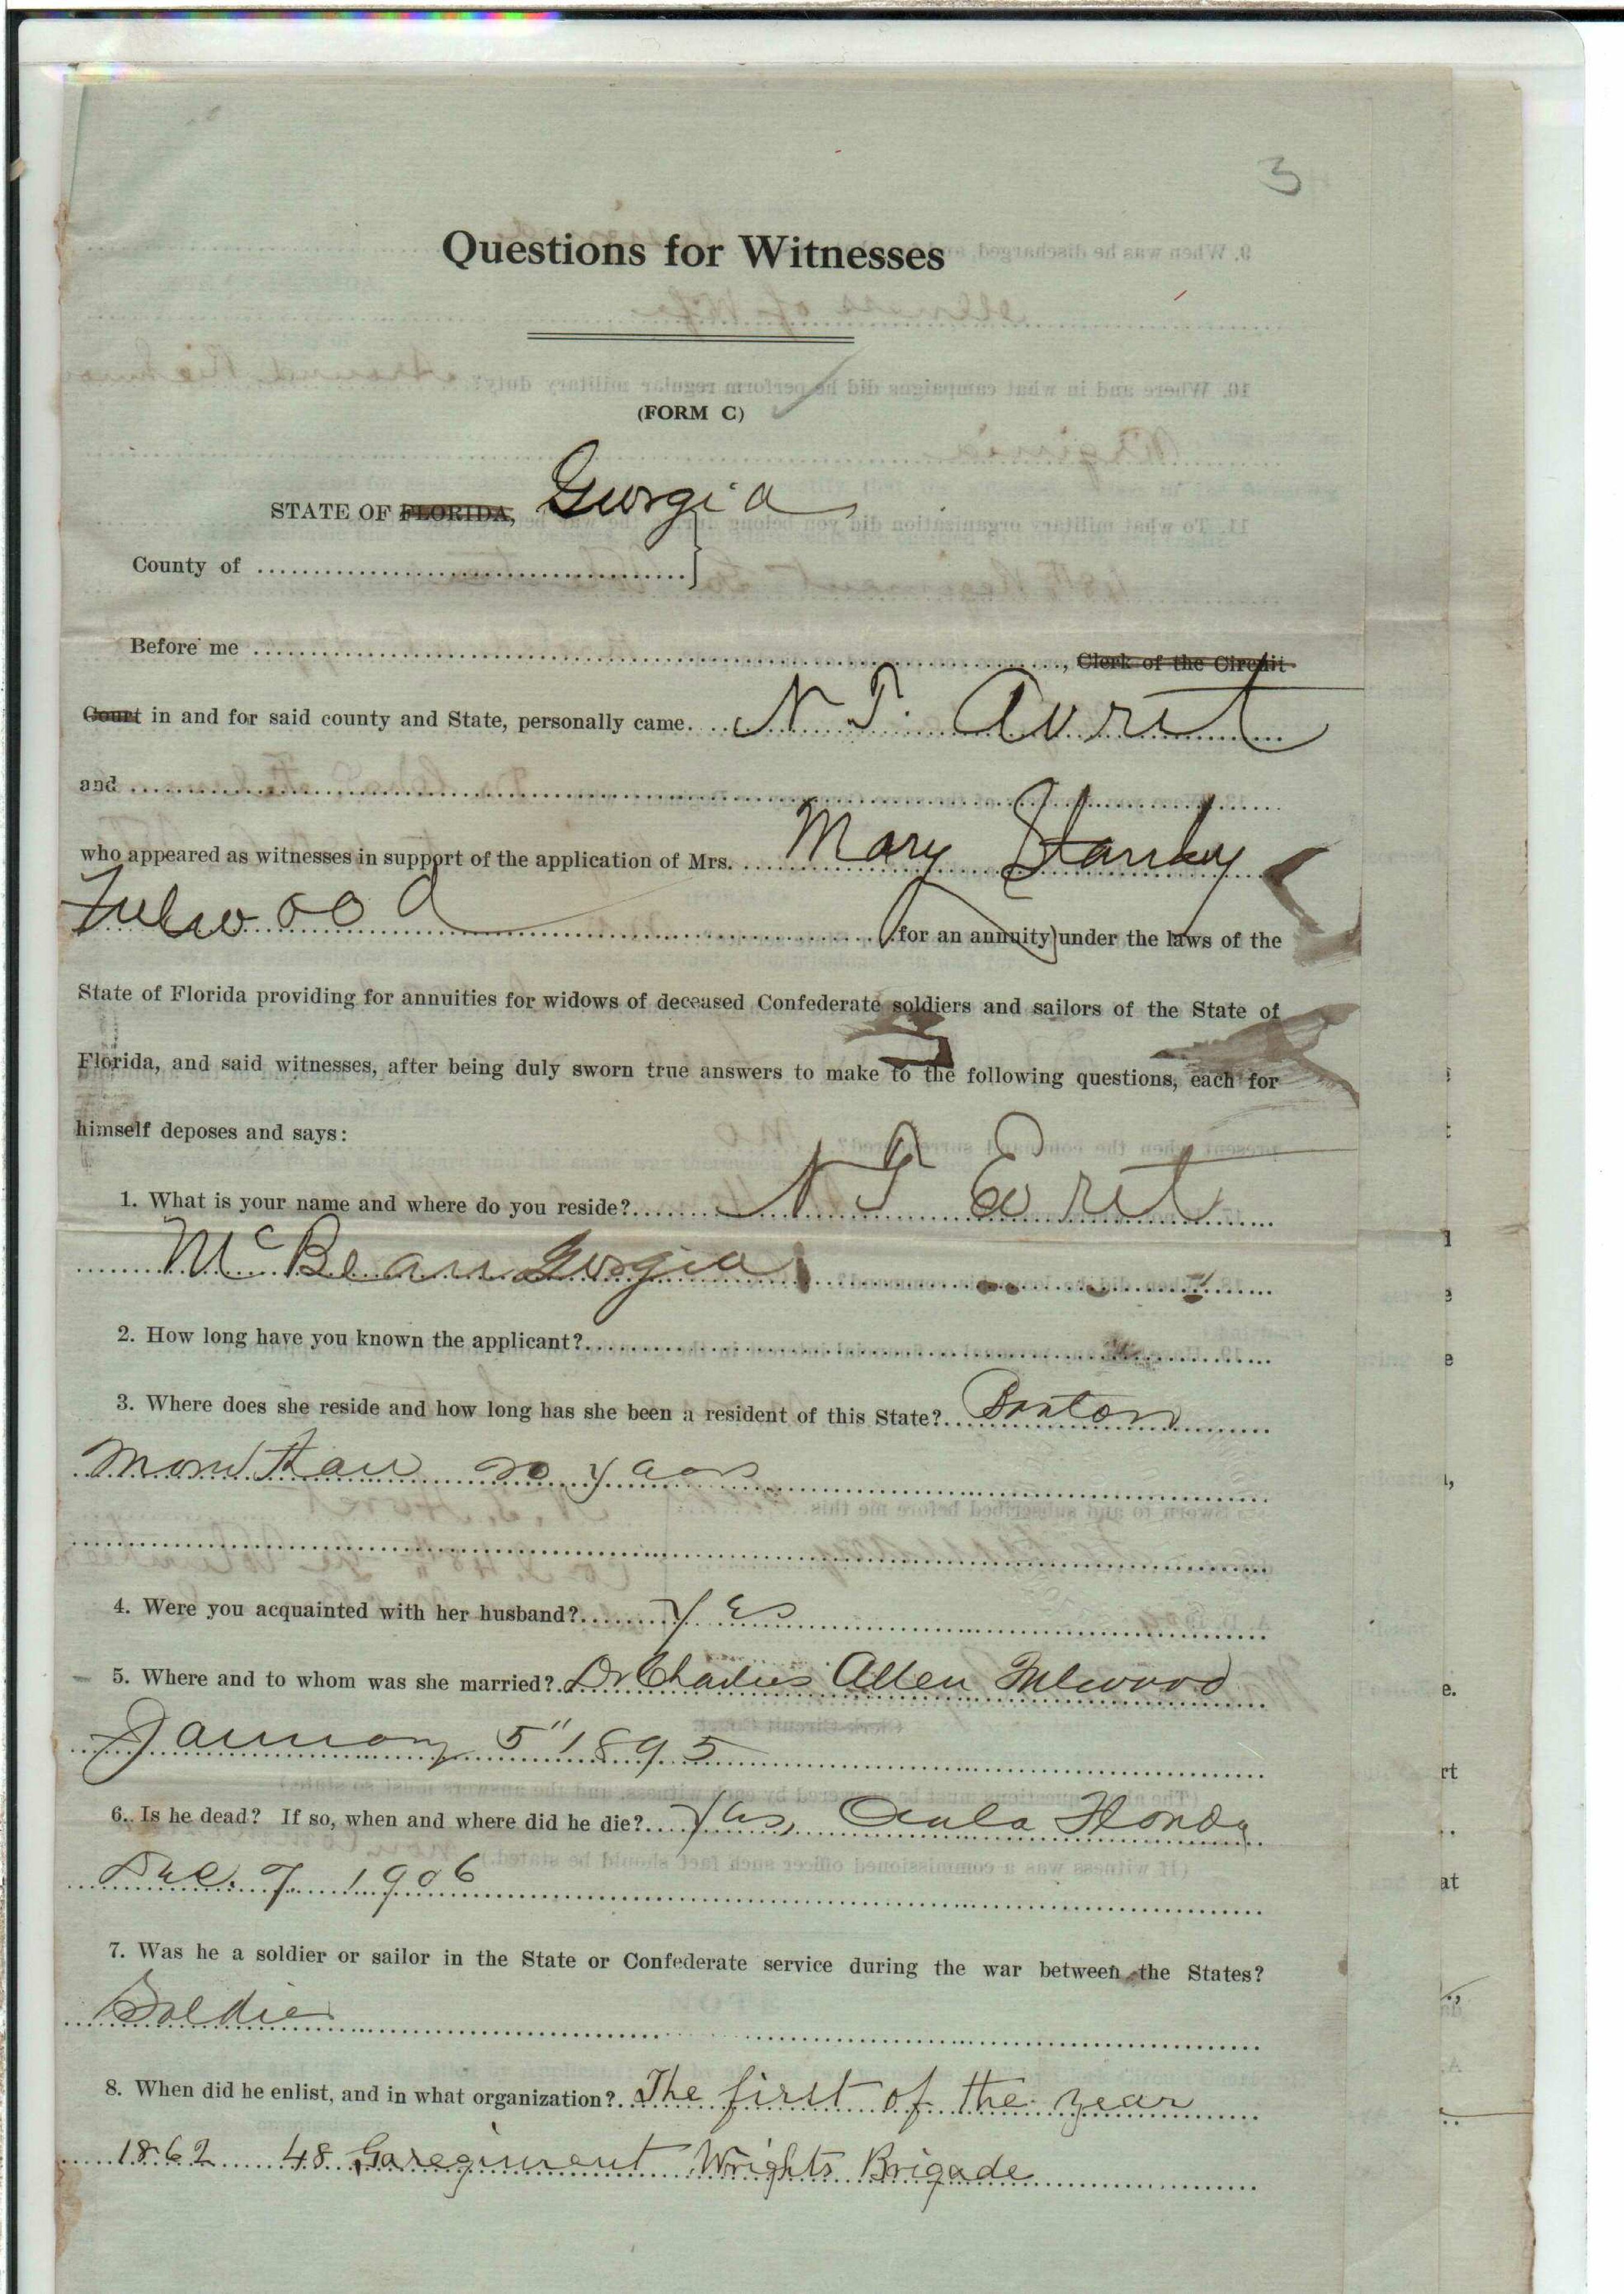 3
Questions for Witnesses
(FORM C)
STATE OF FLORIDA, Georgia
County of
Before me , Clerk of the Circuit
Court in and for said county and State, personally came N T. Avret
and
who appeared as witnesses in support of the application of Mrs. Mary Stanley
Fulwood for an annuity under the laws of the
State of Florida providing for annuities for widows of deceased Confederate soldiers and sailors of the State of
Florida, and said witnesses, after being duly sworn true answers to make to the following questions, each for
himself deposes and says:
1. What is your name and where do you reside? N T
McBean Gorgia
2. How long have you known the applicant?
3. Where does she reside and how long has she been a resident of this State?
than 20 years
4. Were you acquainted with her husband? yes
5. Where and to whom was she married? Dr Charles Allen Fulwood
January 5" 1895
6. Is he dead? If so, when and where did he die? Yes, Ocala Florida
Dec. 7 1906
7. Was he a soldier or sailor in the State or Confederate service during the war between the States?
Soldier
8. When did he enlist, and in what organization? The first of the year
1862 48 Ga regiment Wrights Brigade